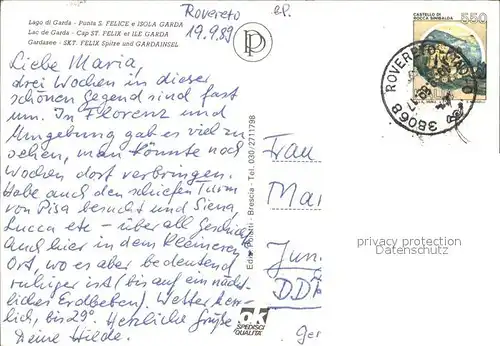 Lago di Garda - Punta S. FELICE e ISOLA GARDA
Lac de Garda - Cap ST. FELIX et ILE GARDA
Gardasee - SKT. FELIX Spitze und GARDAINSEL
Rovereto
19.9.89
Liebe Maria,
drei Wochen in dieser
schönen Gegend sind fast
um. In Florenz und
Umgebung gab es viel zu
sehen, man könnte noch
Wochen dort verbringen.
Habe auch den schiefen Turm
von Pisa besucht und Siena
Lucca etc - überall Geschichte
Auch hier in dem kleineren
Ort, wo es aber bedeutend
ruhiger ist (bis auf ein nächt-
liches Erdbeben). Wetter herr-
lich, bis 29°. Herzliche Grüße
Deine Hilde.
Brescia - Tel. 030/2711798
ok
SPEDISCI
QUALITÀ
CASTELLO DI
ROCCA SINIBALDA
550
38068 ROVERETO
Frau
Mar
Jun
DDR
Ger
privacy protection
Datenschutz